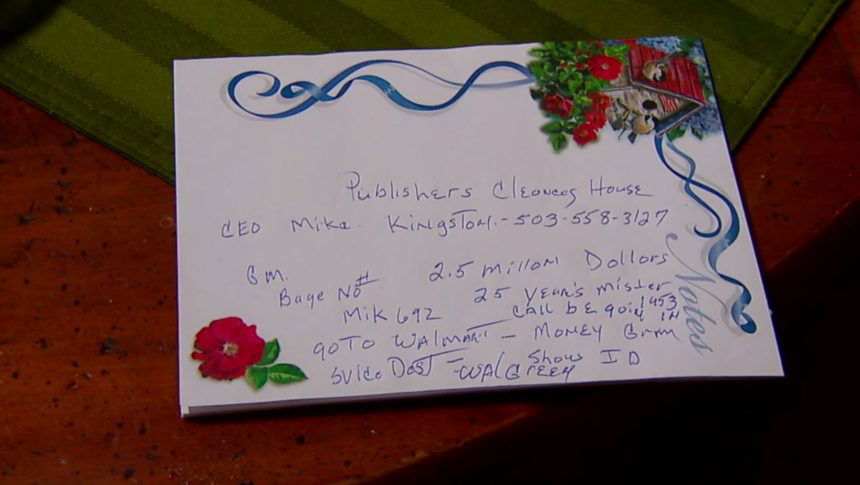 Publishers Cleancog House
CEO Mike. Kingston.-503-558-3127
GM. 2.5 millon Dollors
Bage No# 25 Year's mister
Mik 692 call be going in 1453
goTo Walmart - Money Gram
Show ID
Dest - WALGreen
Notes